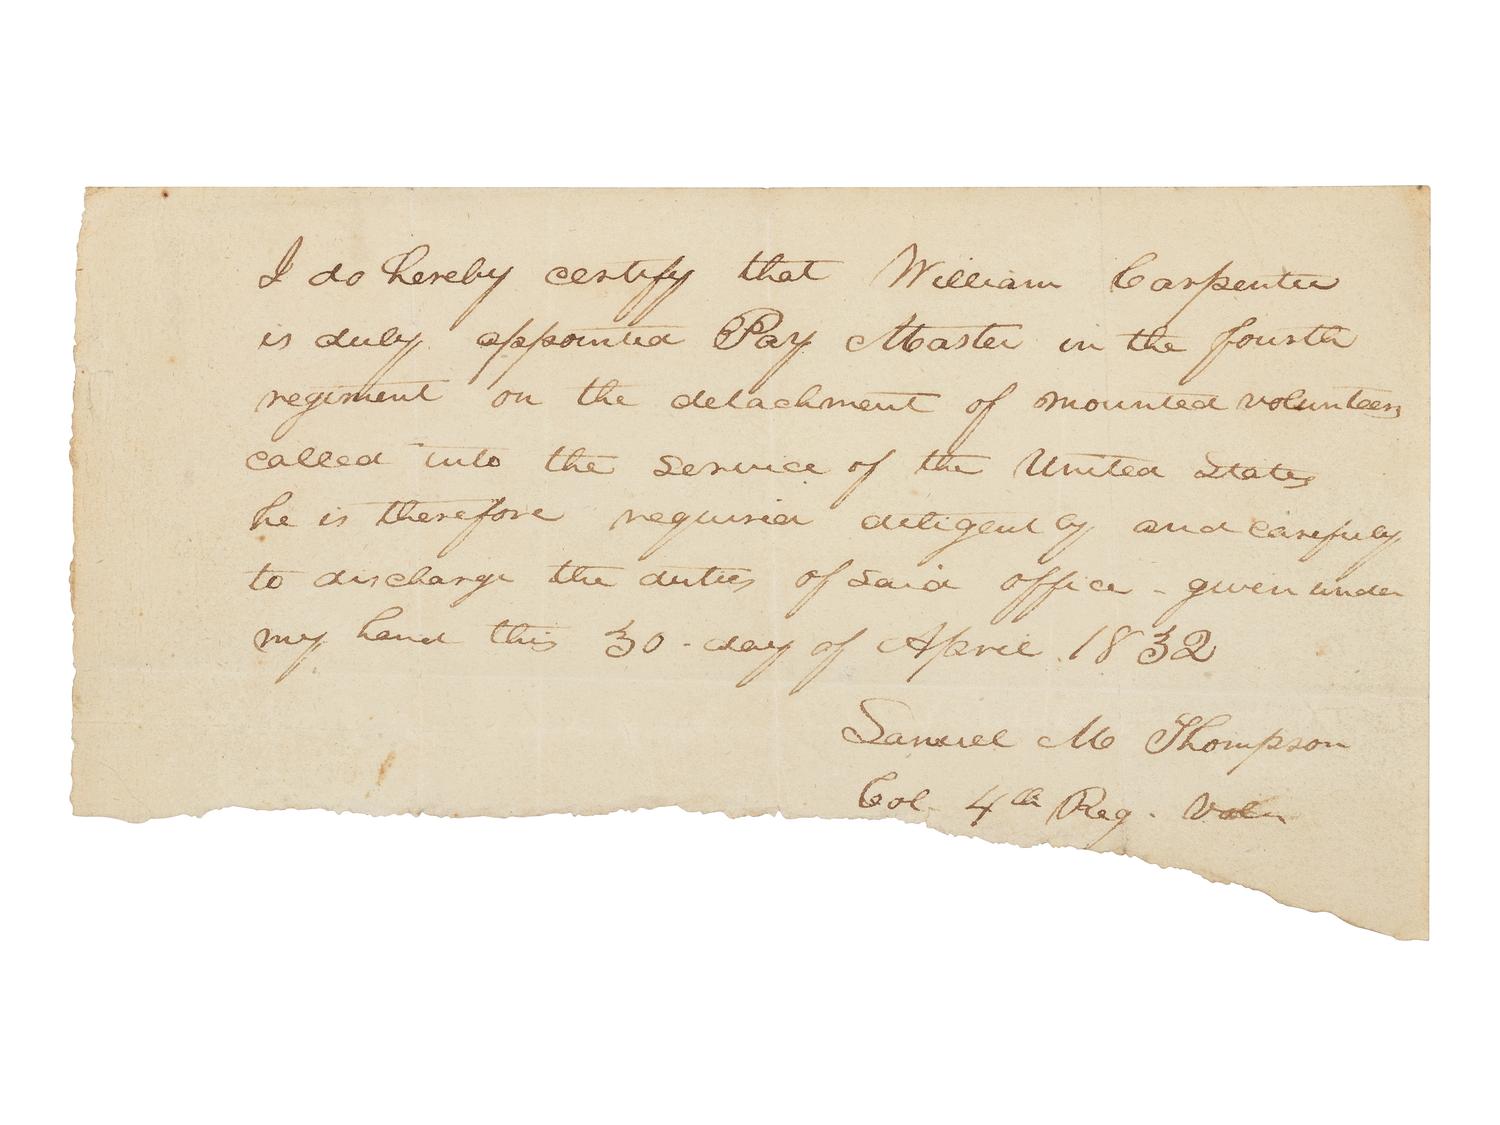 I do hereby certify that William Carpenter
is duly appointed Pay Master in the fourth
regiment on the detachment of mounted volunteers
called into the service of the United States
he is therefore required diligently and carefully
to discharge the duties of said office - given under
my hand this 30 - day of April 1832
Samuel M Thompson
Col 4th Reg. Voln